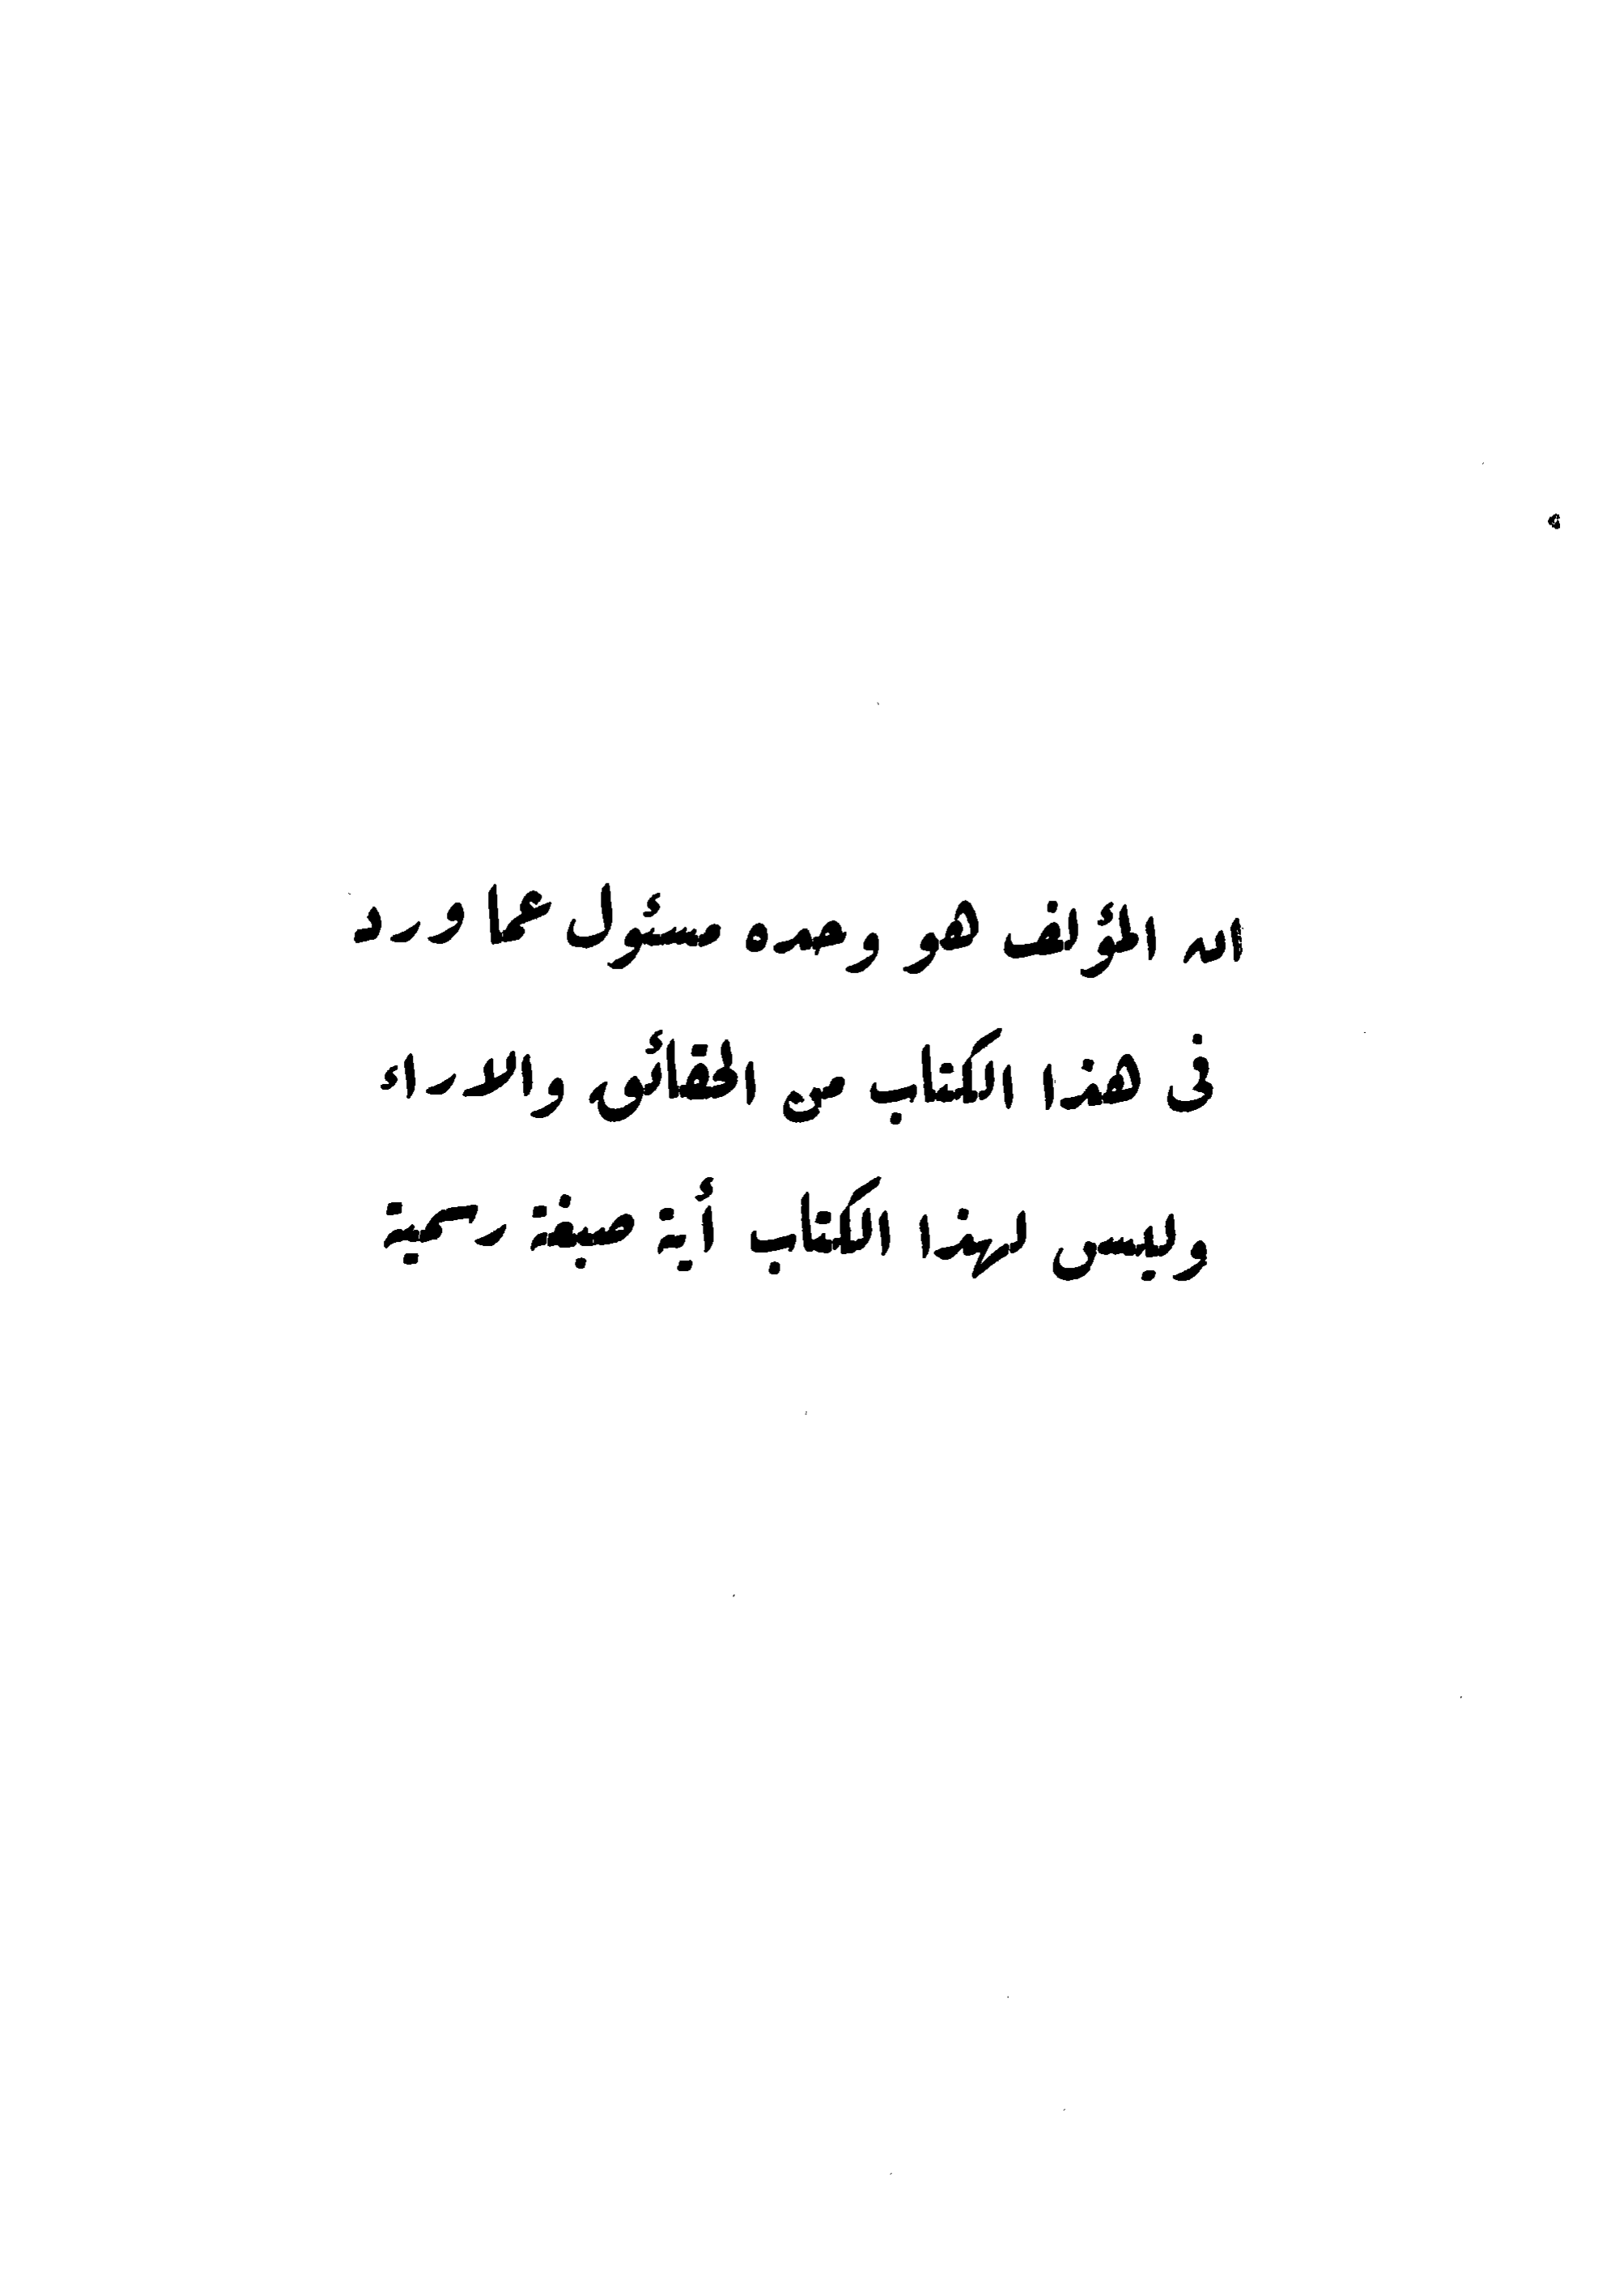 ان المؤلف هو وحده مسئول عما ورد
فى هذا الكتاب من الحقائق والاراء
وليس لهذا الكتاب أية صبغة رسمية